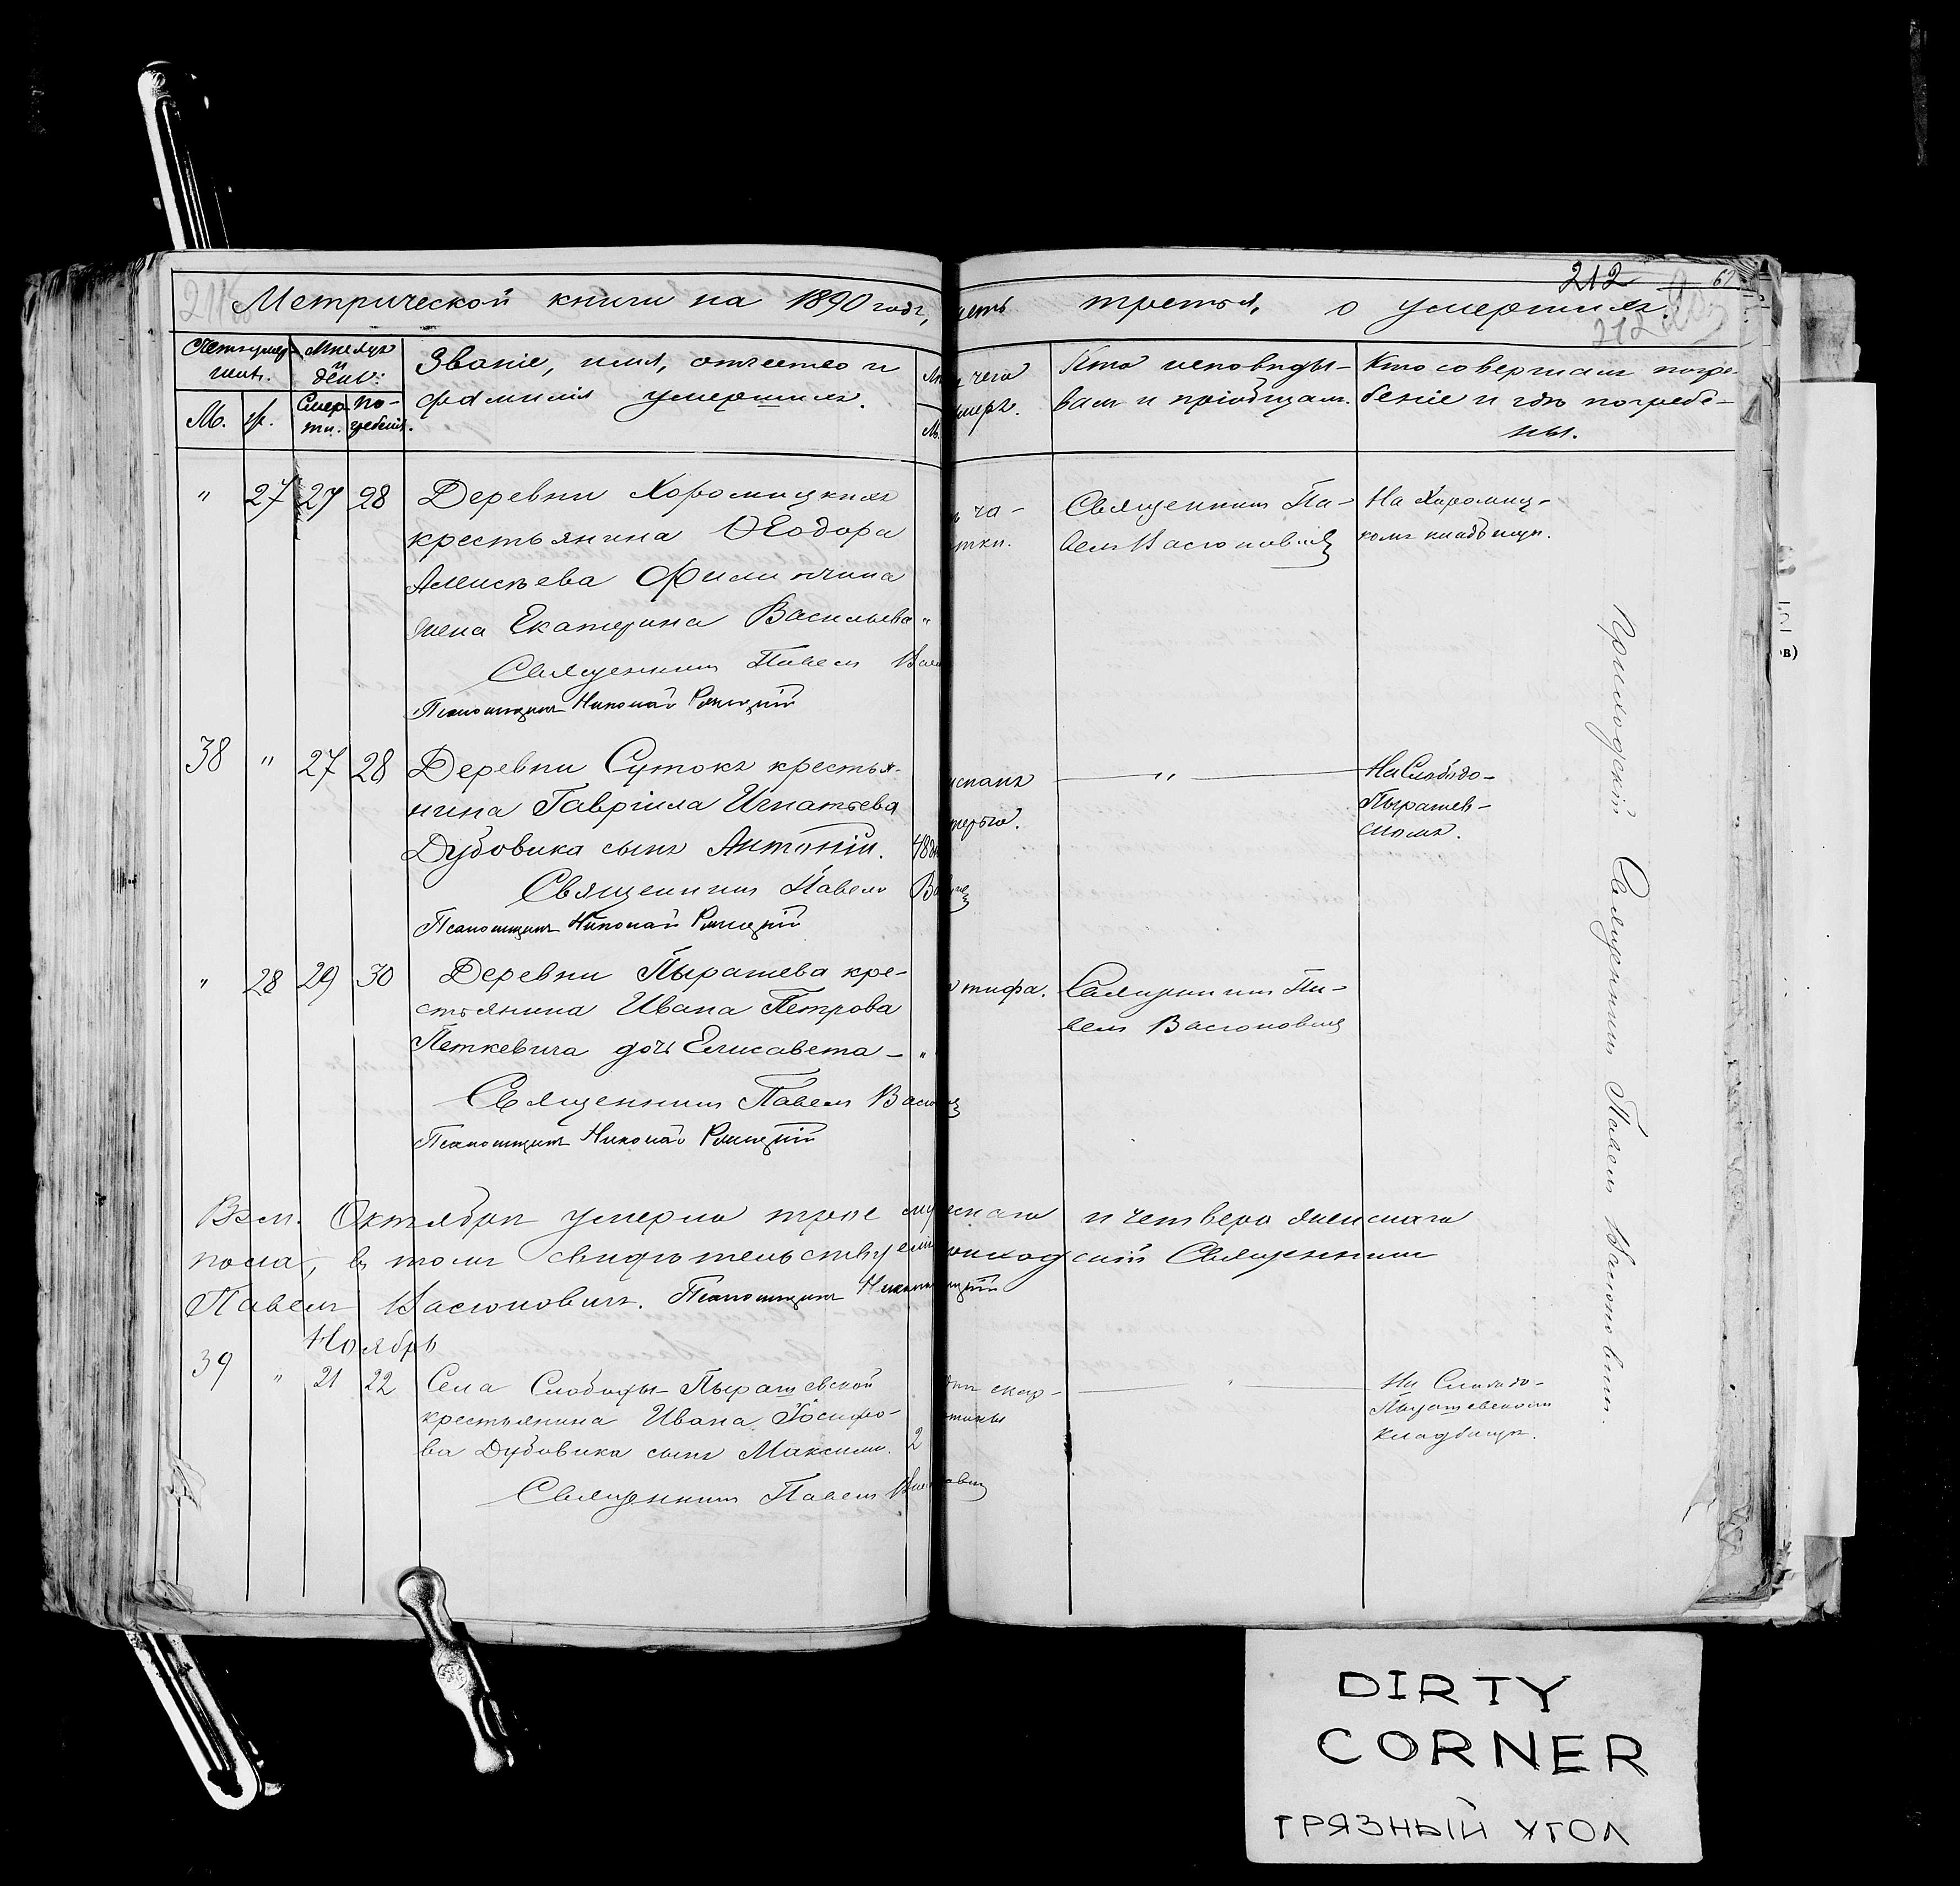 212
Метрической книги на 1890 годъ, часть третья, о умершихъ.
212
Счетъ умер-
шихъ.
Мѣсяцъ
и
день:
Званіе, имя, отчество и
фамилія умершихъ.
чего
Кто исповѣды-
валъ и пріобщалъ.
Кто совершалъ погре-
беніе и гдѣ погребе-
ны.
М. ж.
Смер-
ти.
По-
гребенія.
" 27 27 28
Деревни Хоромицкихъ
крестьянина Ѳеодора
Алексѣева Филипчика
жена Екатерина Васильева "
Священникъ Павелъ
Псаломщикъ Николай
ча-
тки.
Священникъ Па-
велъ Васюковичъ
На Хоромиц-
комъ кладбищѣ.
38 " 27 28
Деревни Сутокъ крестья-
нина Гавріила Игнатьева
Дубовика сынъ Антоній. 48 дн
Священникъ Павелъ
Псаломщикъ Николай
"
На Слободо-
Пырашев-
скомъ.
" 28 29 30
Деревни Пырашева кре-
стьянина Ивана Петрова
Петкевича дочь Елисавета - "
Священникъ Павелъ
Псаломщикъ Николай
тифа.
Священникъ Па-
велъ Васюковичъ
Въ м. Октябрѣ умерло трое мужескаго и четверо женскаго
пола, въ томъ свидѣтельствуемъ Приходскій Священникъ
Павелъ Васюковичъ. Псаломщикъ
Ноябрь
39 " 21 22
Села Слободы-Пырашевской
крестьянина Ивана Іосифо-
ва Дубовика сынъ Максимъ. 2
Священникъ Павелъ
скар-
латины
"
На Слободо-
Пырашевскомъ
кладбищѣ.
Приходскій Священникъ Павелъ Васюковичъ.
ов)
DIRTY
CORNER
ГРЯЗНЫЙ УГОЛ